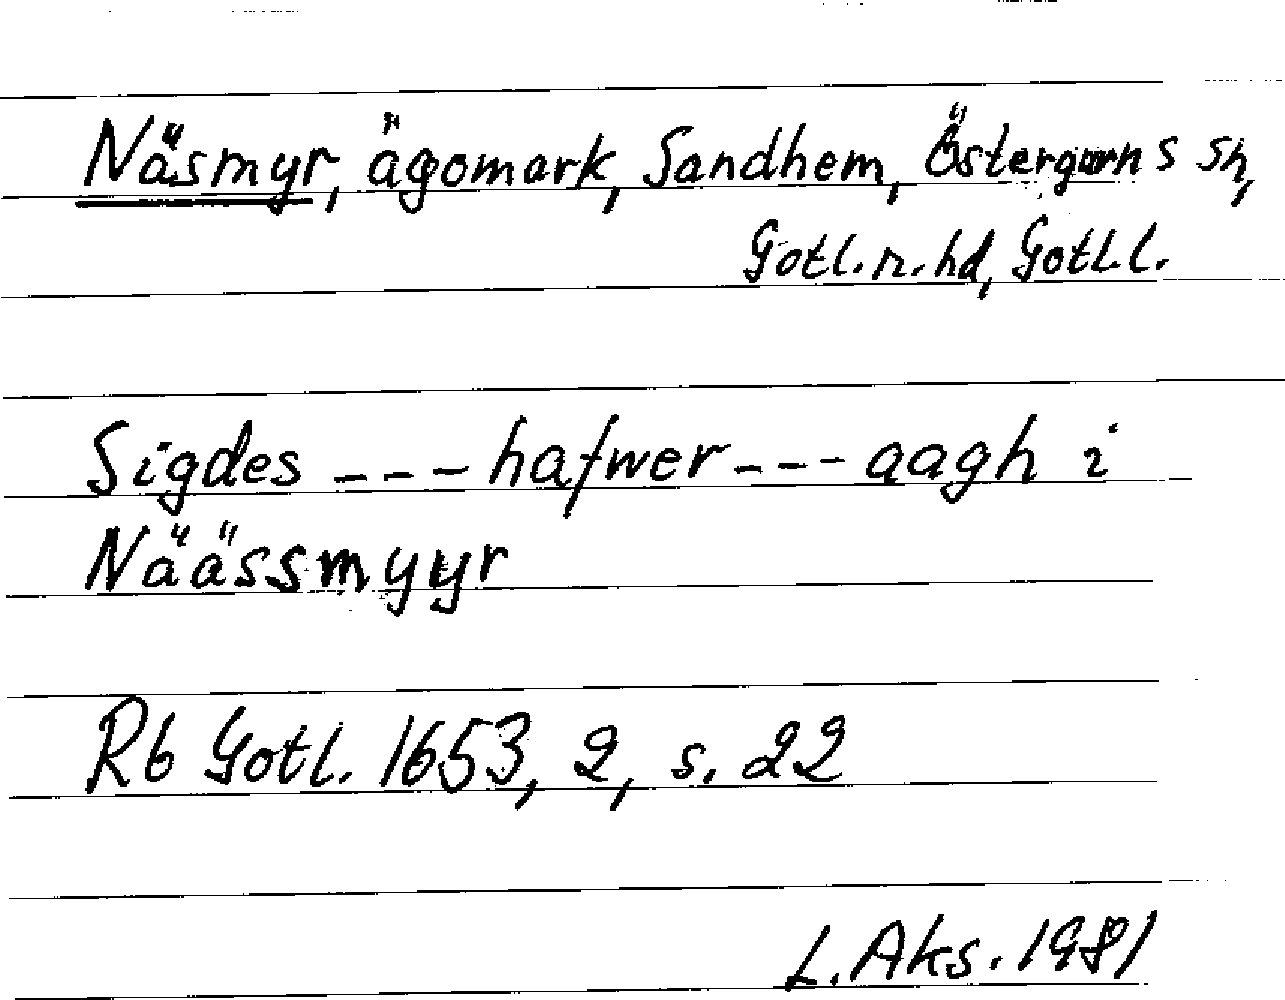 Näsmyr, ägomark, Sandhem, Östergarns sn,
Gotl. n. hd, Gotl. l.
Sigdes --- hafwer --- aagh i
Näässmyyr
Rb Gotl. 1653, 2, s. 22
L. Aks. 1981